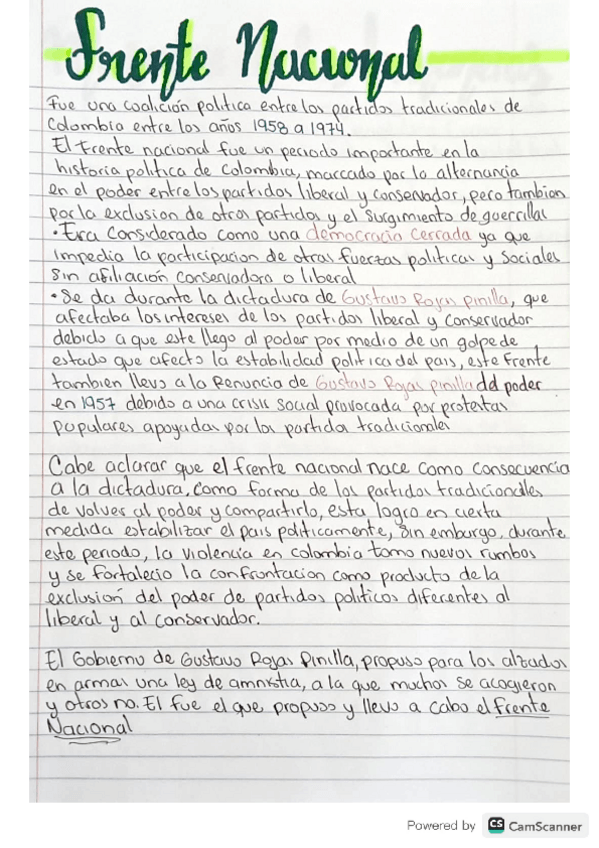 Frente Nacional
Fue una coalición politica entre los partidos tradicionales de
Colombia entre los años 1958 a 1974.
El frente nacional fue un periodo importante en la
historia politica de Colombia, marcado por la alternancia
en el poder entre los partidos liberal y conservador, pero tambien
por la exclusion de otros partidos y el surgimiento de guerrillas
• Era considerado como una democracia cerrada ya que
impedia la participacion de otras fuerzas politicas y sociales
sin afiliación conservadora o liberal
• Se da durante la dictadura de Gustavo Rojas pinilla, que
afectaba los intereses de los partidos liberal y conservador
debido a que este llego al poder por medio de un golpe de
estado que afecto la estabilidad politica del pais, este frente
tambien llevo a la renuncia de Gustavo Rojas pinilla del poder
en 1957 debido a una crisis social provocada por protestas
populares apoyadas por los partidos tradicionales
Cabe aclarar que el frente nacional nace como consecuencia
a la dictadura, como forma de los partidos tradicionales
de volver al poder y compartirlo, esta logro en cierta
medida estabilizar el pais politicamente, sin embargo, durante
este periodo, la violencia en colombia tomo nuevos rumbos
y se fortalecio la confrontacion como producto de la
exclusión del poder de partidos politicos diferentes al
liberal y al conservador.
El Gobierno de Gustavo Rojas Pinilla, propuso para los alzados
en armas una ley de amnistia, a la que muchos se acogieron
y otros no. El fue el que propuso y llevo a cabo el frente
Nacional
Powered by CS CamScanner